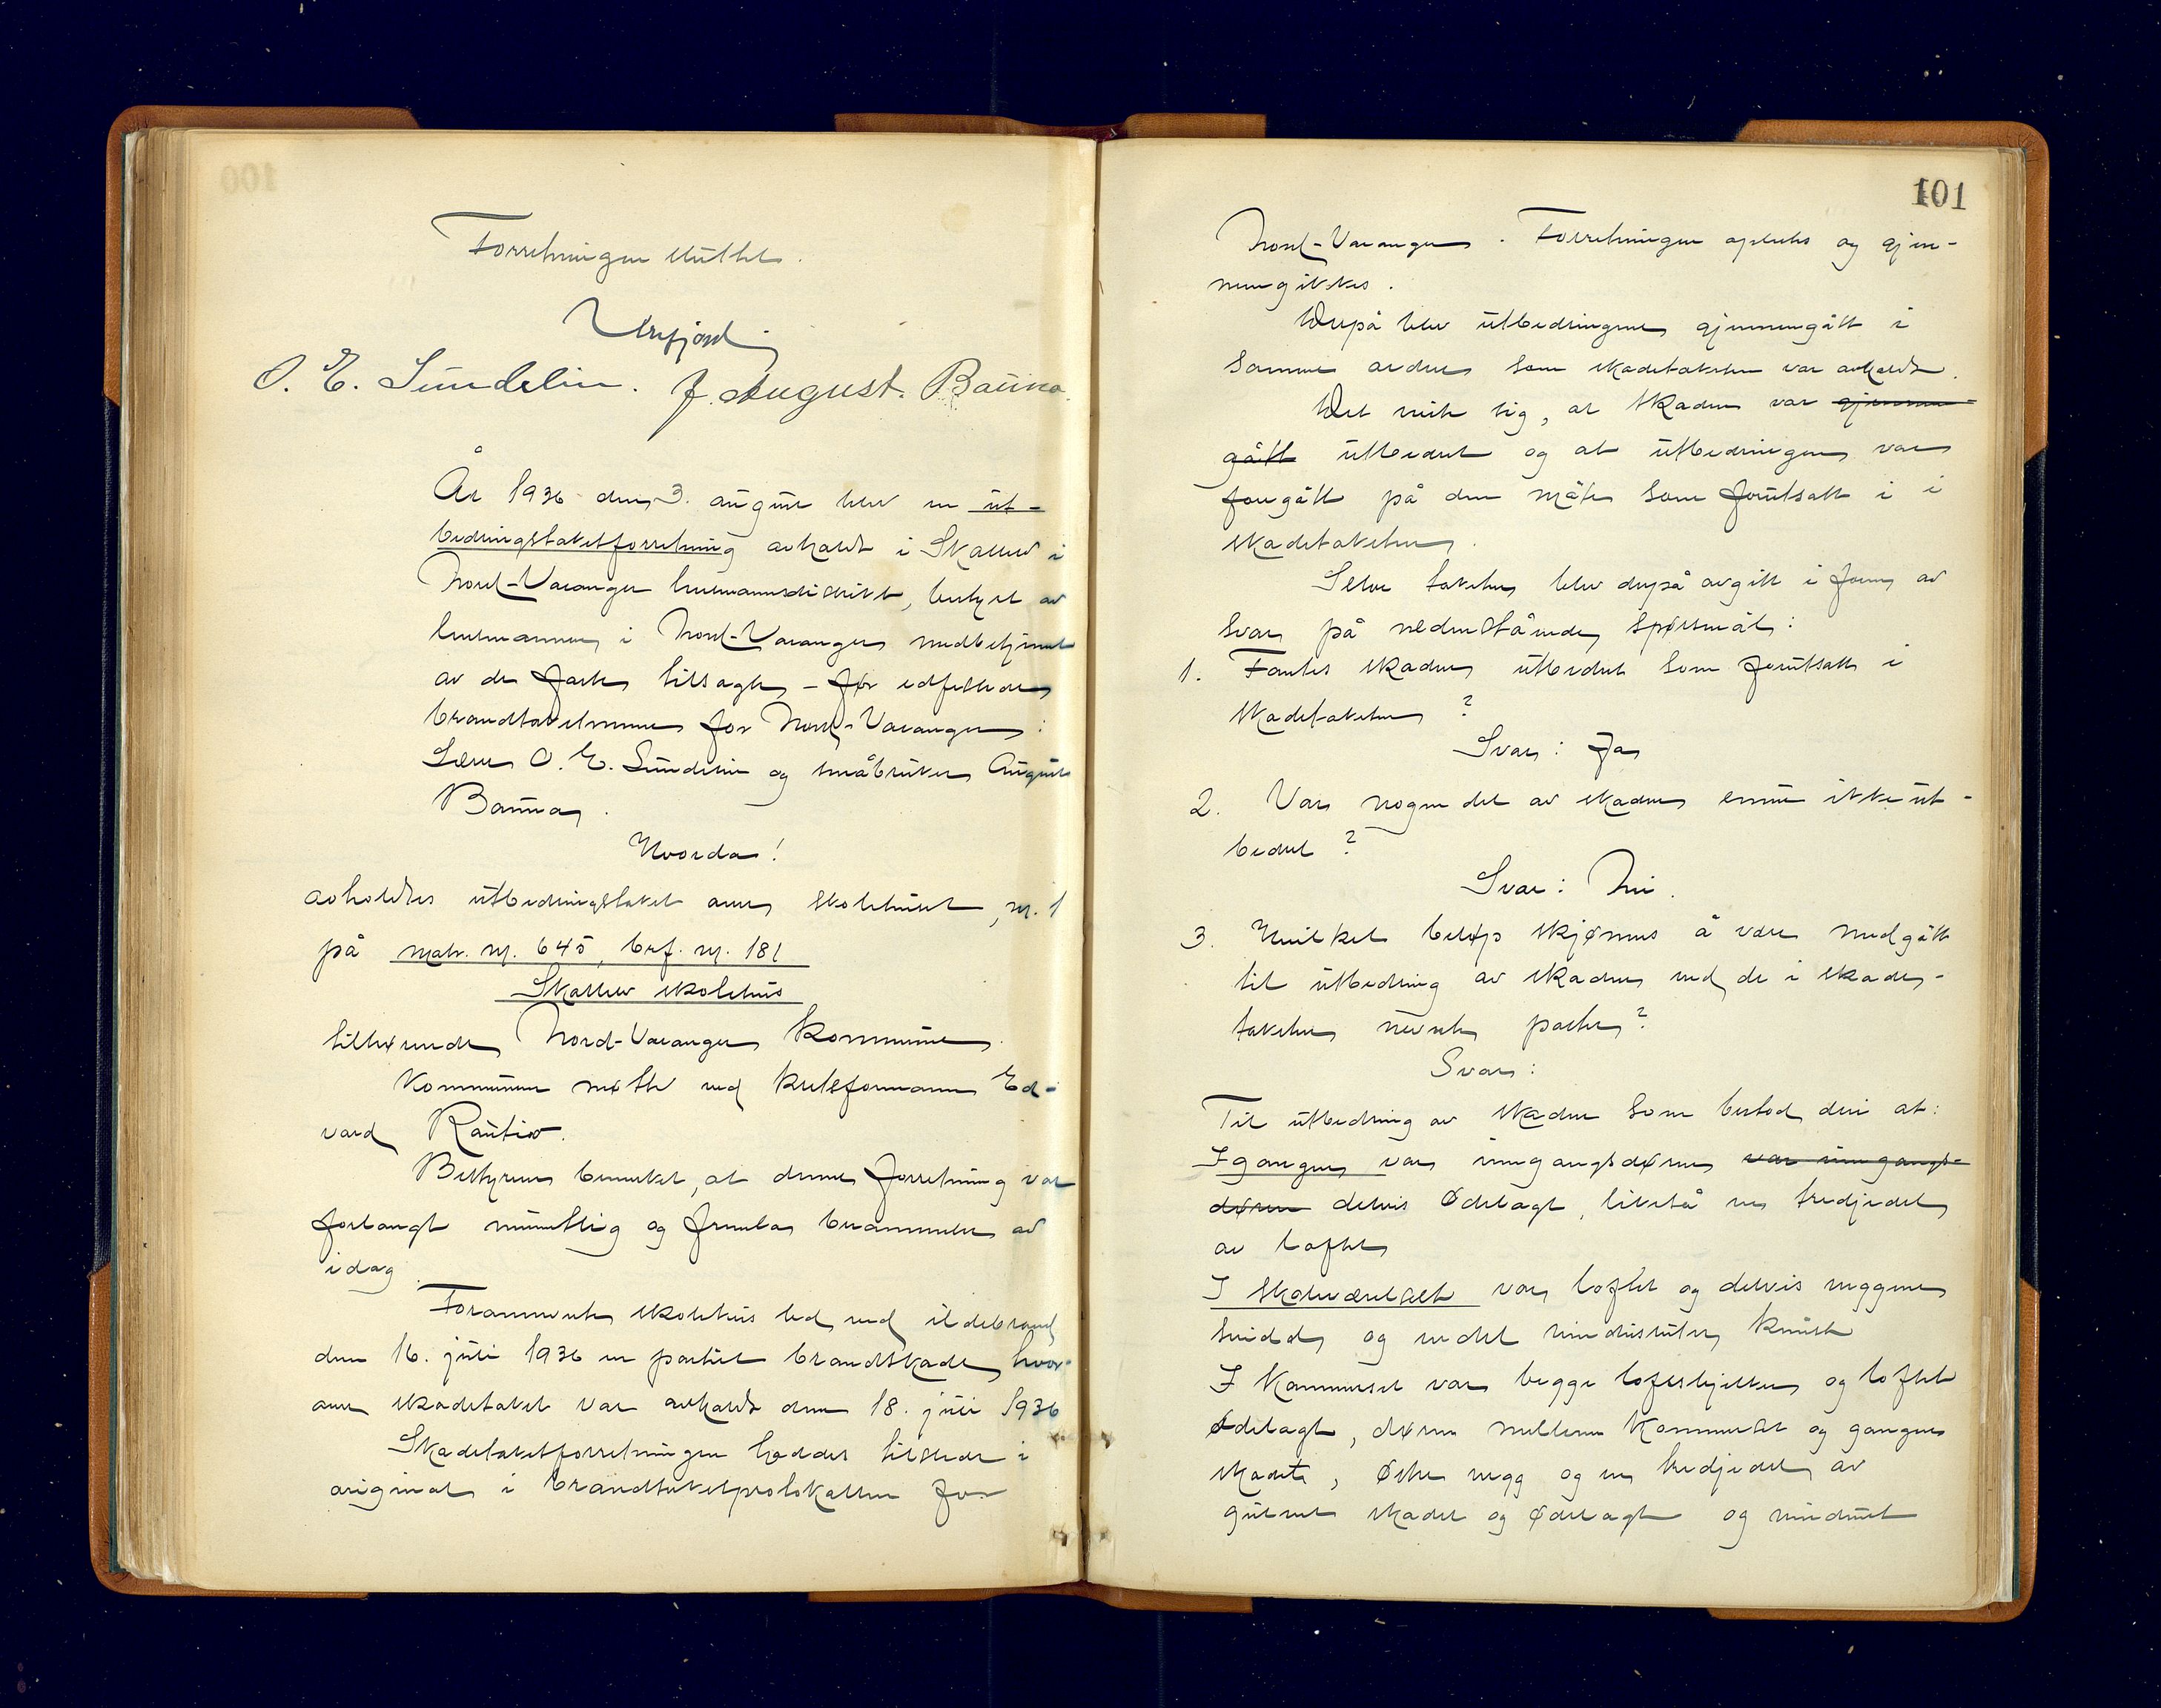 Forretningen sluttet.
Ursfjord
O. E. Sundelin. J. August. Bauna.
År 1936 den 3. august blev en ut-
bedringstakstforretning avholdt i Skallelv i
Nord-Varanger lensmannsdistrikt, bestyret av
lensmannen i Nord-Varanger medbetjenet
av de faste tillagte - før edfestede
brandtakstmenn for Nord-Varanger:
Lærer O. E. Sundelin og småbruker August
Bauna.
Hvorda!
avholdtes utbedringstakst over skolehuset, nr. 1
på matr. nr. 645, brf. nr. 181
Skallelv skolehus
tilhørende Nord-Varanger kommune.
Kommunen møtte ved kretsformann Ed-
vard Rautio.
Bestyreren bemerket, at denne forretning var
forlangt muntlig og foretas berammelse av
idag.
Forannevnte skolehus led ved ildebrand
den 16. juli 1936 en partiel brandskade, hvor-
over skadetakst var avholdt den 18. juli 1936
Skadetakstforretningen haddes tilstede i
original i brandtakstprotokollen for
101
Nord-Varanger. Forretningen oplestes og gjen-
nemgikkes.
Derpå blev utbedringene gjennemgått i
samme orden som skadetaksten var avholdt.
Det viste sig, at skaden var gjennem-
gått utbedret og at utbedringen var
foregått på den måte som forutsatt i i
skadetaksten.
Selve taksten blev derpå avgitt i form av
svar på nedenstående spørsmål:
1. Fantes skaden utbedret som forutsatt i
skadetaksten?
Svar: Ja
2. Var nogen del av skaden ennu ikke ut-
bedret?
Svar: Nei.
3. Hvilket beløp skjønnes å være medgått
til utbedring av skaden ved de i skade-
taksten nevnte parter?
Svar:
Til utbedring av skaden som bestod deri at:
I gangen var inngangsdøren var inngangs-
døren delvis ødelagt, likeså en tredjedel
av loftet
I skoleværelset var loftet og delvis veggene
svidd og endel vindusruter knust
I kammerset var begge loftsbjelker og loftet
ødelagt, døren mellem kammerset og gangen
skadet, østre vegg og en tredjedel av
gulvet skadet og ødelagt og vinduet